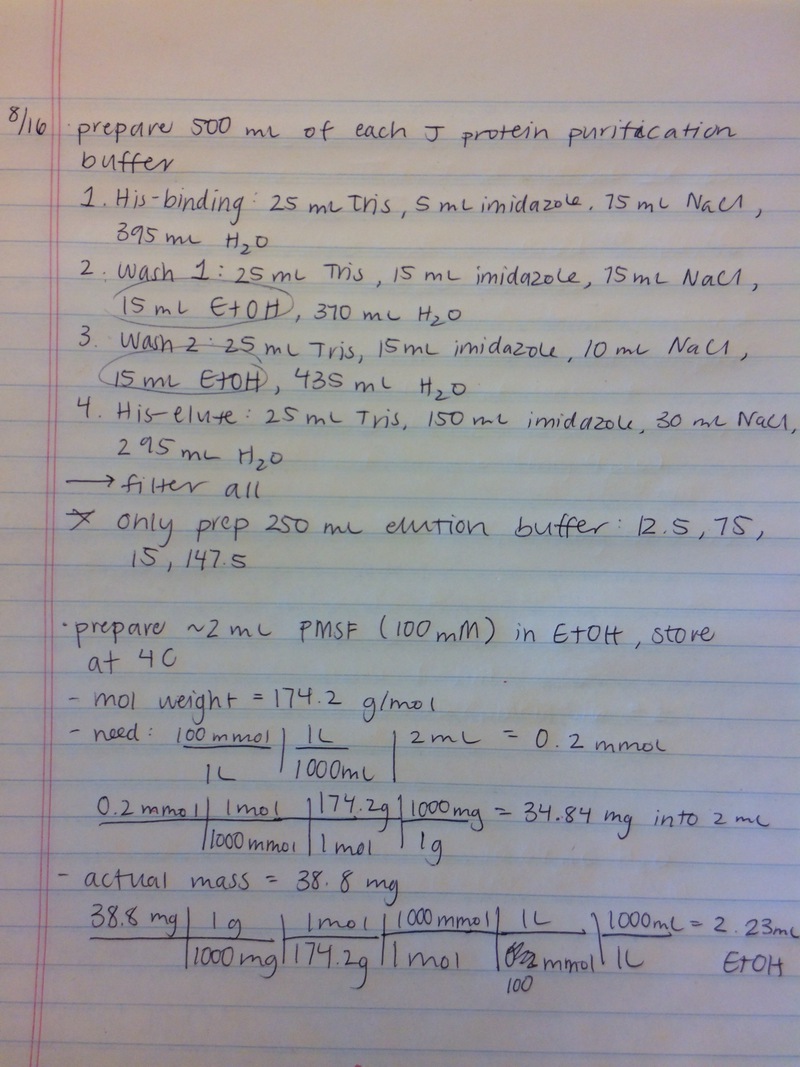 8/16 · prepare 500 mL of each J protein purification
buffer
1. His-binding: 25 mL Tris, 5 mL imidazole, 75 mL NaCl,
395 mL H2O
2. Wash 1: 25 mL Tris, 15 mL imidazole, 75 mL NaCl,
15 mL EtOH, 370 mL H2O
3. Wash 2: 25 mL Tris, 15 mL imidazole, 10 mL NaCl,
15 mL EtOH, 435 mL H2O
4. His-elute: 25 mL Tris, 150 mL imidazole, 30 mL NaCl,
295 mL H2O
→ filter all
* only prep 250 mL elution buffer: 12.5, 75,
15, 147.5
· prepare ~2 mL PMSF (100 mM) in EtOH, store
at 4C
- mol weight = 174.2 g/mol
- need: 100 mmol | 1L | 2 mL = 0.2 mmol
1L | 1000 mL |
0.2 mmol | 1 mol | 174.2g | 1000 mg = 34.84 mg into 2 mL
| 1000 mmol | 1 mol | 1g
- actual mass = 38.8 mg
38.8 mg | 1 g | 1 mol | 1000 mmol | 1L | 1000 mL = 2.23 mL
| 1000 mg | 174.2g | 1 mol | mmol | 1L EtOH
100